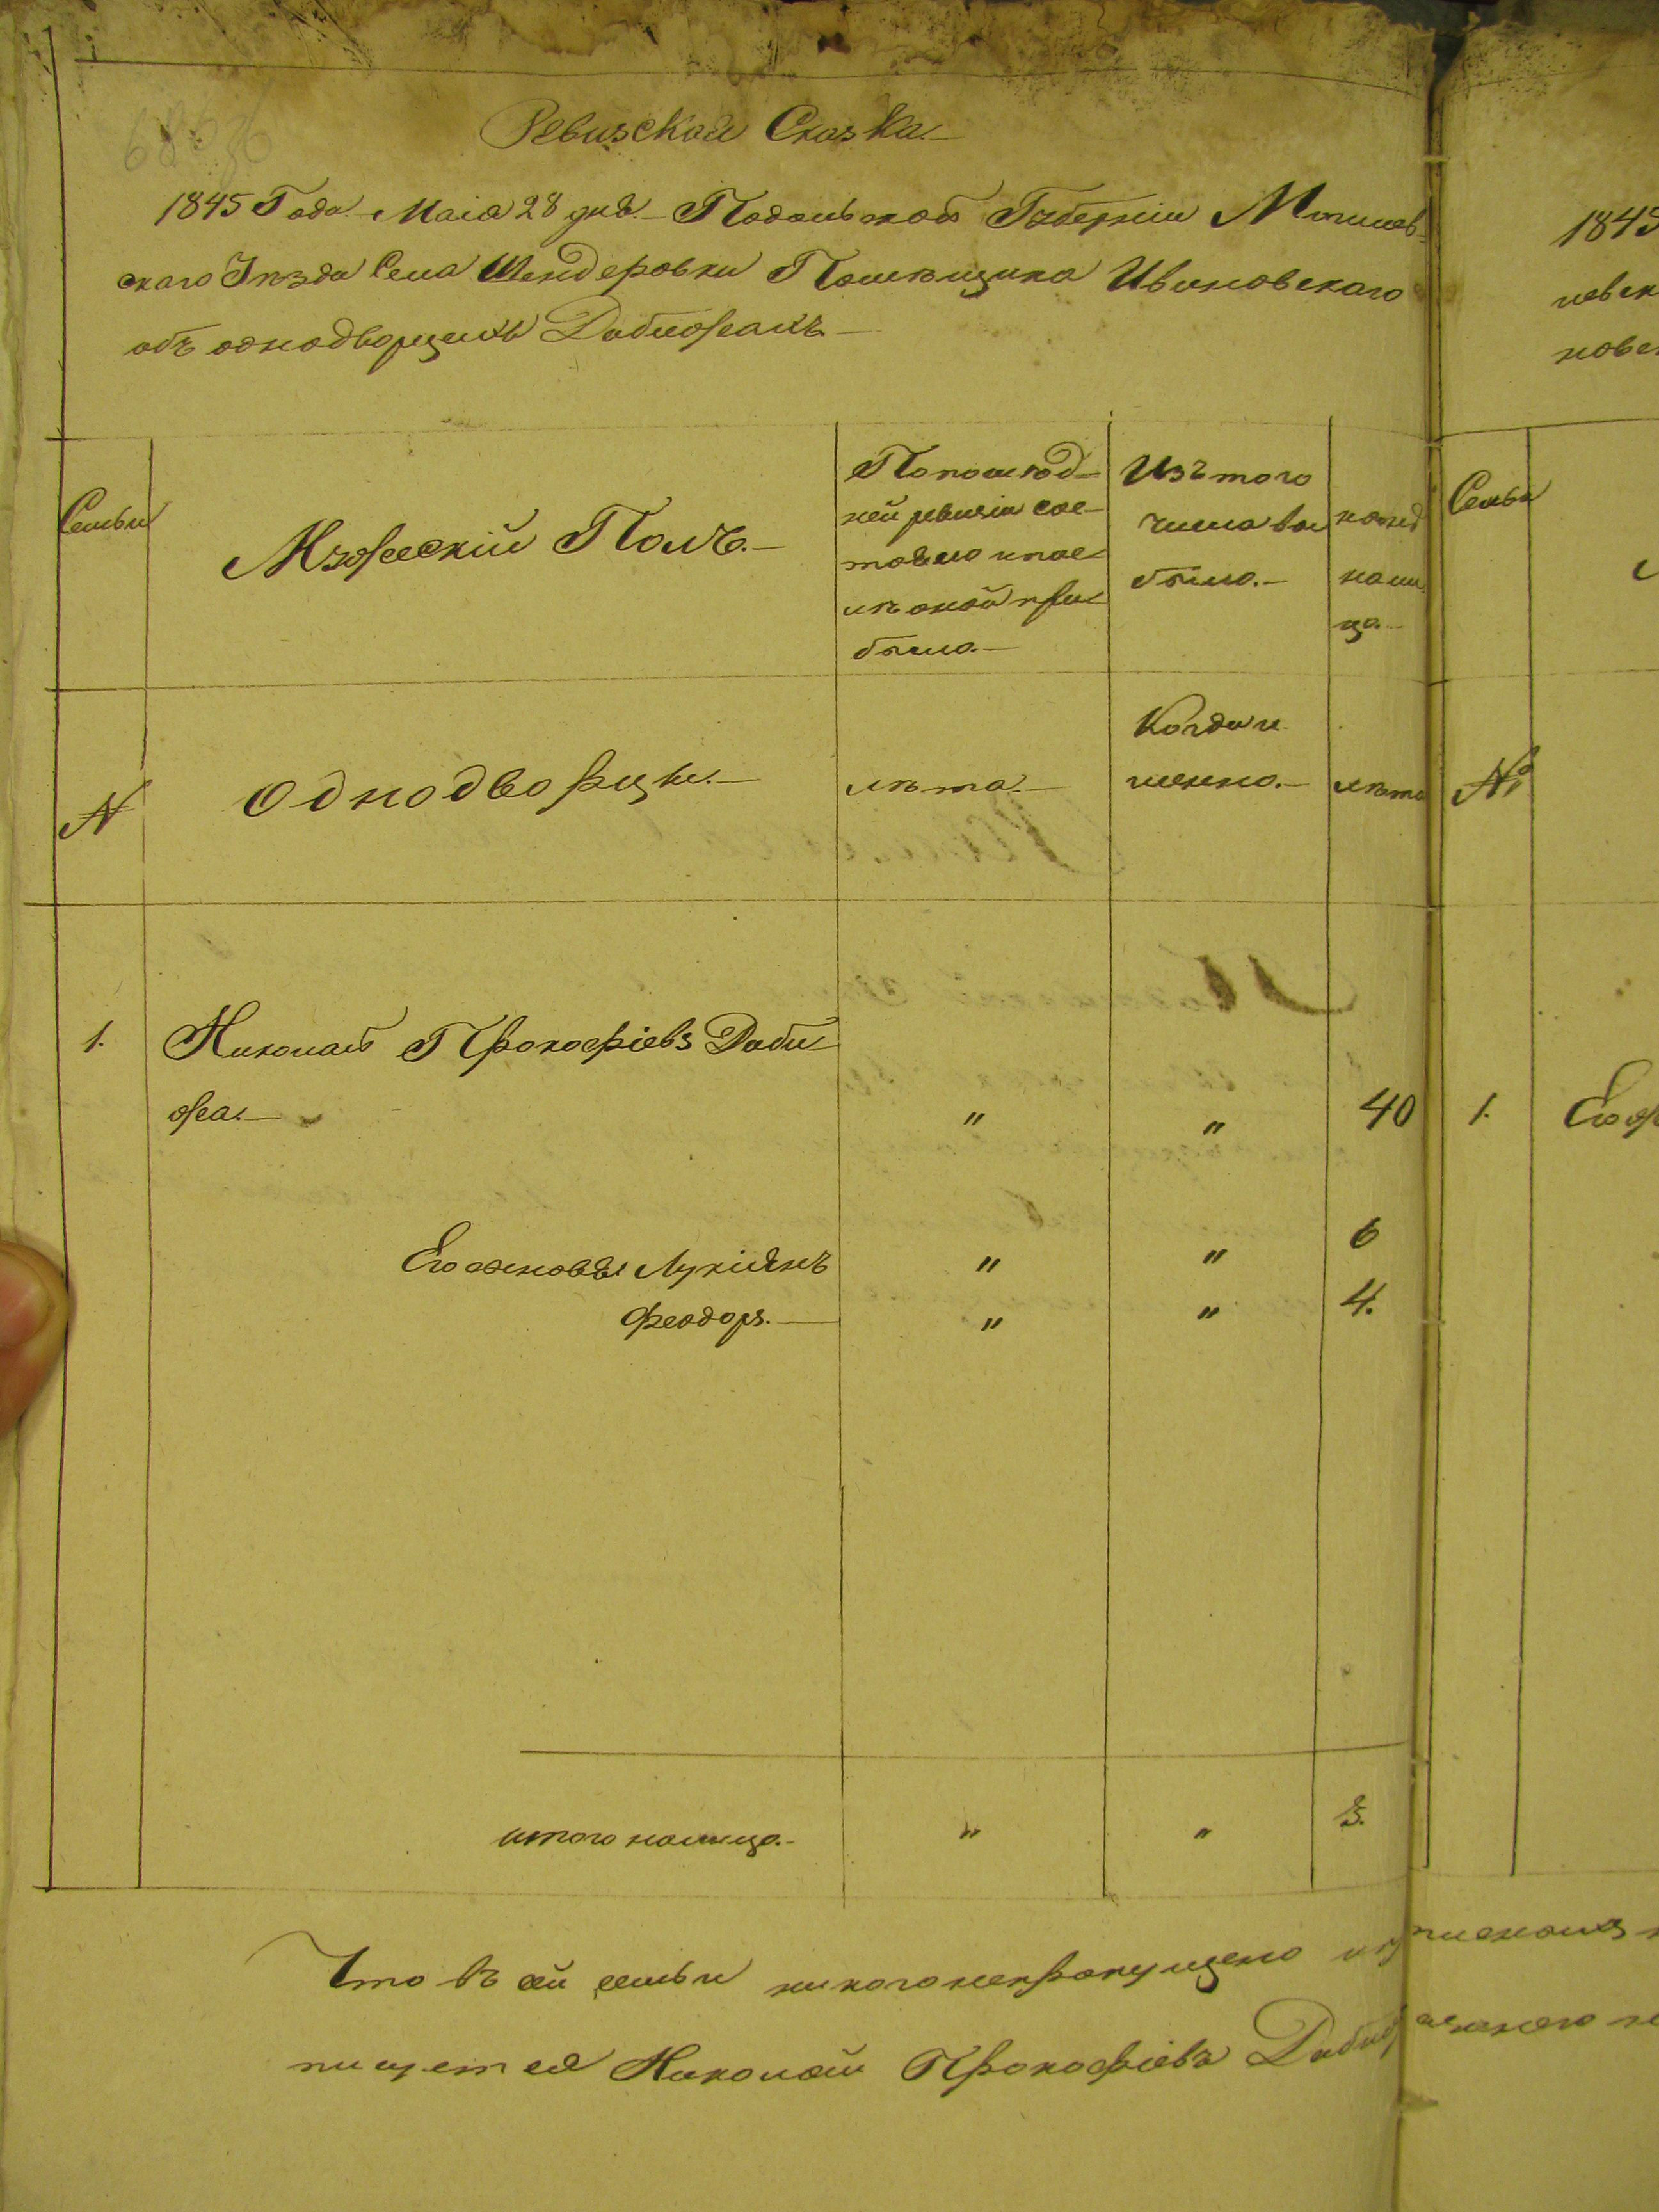 Ревизская Сказка.
1845 Года Маія 28 дня Подольской Губерніи Могилев-
скаго Уѣзда Села Шендеровки Помѣщика Ивановскаго
объ однодворцахъ Дабижахъ
Семьи
Мужескій Полъ.
По послѣд-
ней ревизіи сос-
тояло и пос-
лѣ оной при-
было.
Изъ того
числа вы
было.
нали
цо.
Семьи
N
Однодворцы.
лѣта.
Когда и
менно.
лѣта
№
1. Николай Прокофіевъ Даби
жа. " " 40
Его сыновья Лукіянъ " " 6
Феодоръ. " " 4.
итого налицо. " " 3.
Что въ сей семьи никого непропущено
пищется Николай Прокофіевъ
1845
1.